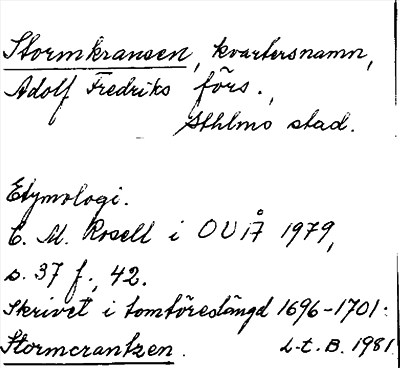 Stormkransen, kvartersnamn,
Adolf Fredriks förs.,
Sthlms stad.
Etymologi.
C. M. Rosell i OUÅ 1979,
s. 37 f., 42.
Skrivet i tomtörestängd 1696-1701:
Stormcrantzen.
L-t. B. 1981